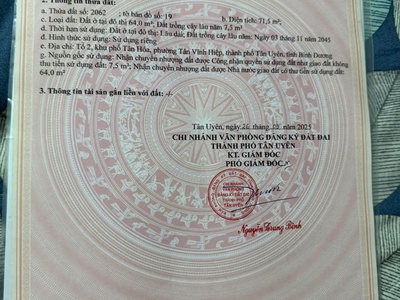 2. Thông tin thửa đất:
a. Thửa đất số: 2062 ; tờ bản đồ số: 19 ; b. Diện tích: 71,5 m²;
c. Loại đất: Đất ở tại đô thị 64,0 m²; Đất trồng cây lâu năm 7,5 m²
d. Thời hạn sử dụng: Đất ở tại đô thị: Lâu dài; Đất trồng cây lâu năm: Ngày 03 tháng 11 năm 2045
đ. Hình thức sử dụng: Sử dụng riêng;
e. Địa chỉ: Tổ 2, khu phố Tân Hóa, phường Tân Vĩnh Hiệp, thành phố Tân Uyên, tỉnh Bình Dương
g. Nguồn gốc sử dụng: Nhận chuyển nhượng đất được Công nhận quyền sử dụng đất như giao đất không
thu tiền sử dụng đất: 7,5 m²; Nhận chuyển nhượng đất được Nhà nước giao đất có thu tiền sử dụng đất:
64,0 m²
3. Thông tin tài sản gắn liền với đất: -/-
Tân Uyên, ngày 26 tháng 05 năm 2025
CHI NHÁNH VĂN PHÒNG ĐĂNG KÝ ĐẤT ĐAI
THÀNH PHỐ TÂN UYÊN
KT. GIÁM ĐỐC
PHÓ GIÁM ĐỐC
CHI NHÁNH
VĂN PHÒNG
ĐĂNG KÝ ĐẤT ĐAI
THÀNH PHỐ
TÂN UYÊN